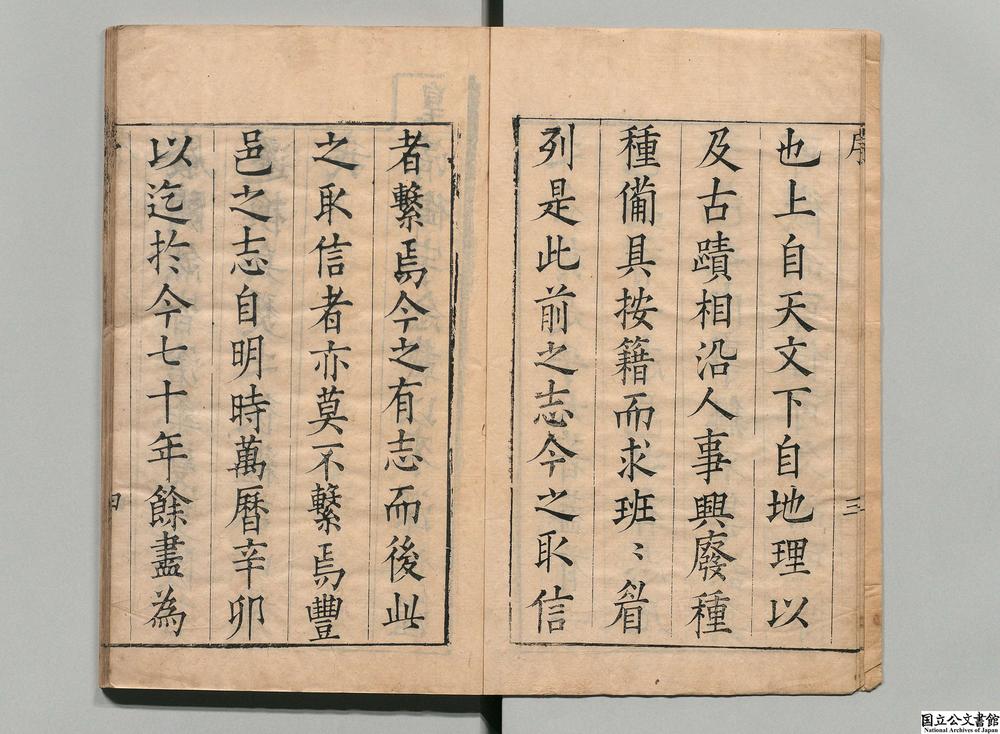 序
三
也上自天文下自地理以
及古蹟相沿人事興廢種
種備具按籍而求班〻眉
列是此前之志今之取信
者繫焉今之有志而後此
之取信者亦莫不繫焉豐
邑之志自明時萬曆辛卯
以迄於今七十年餘盡為
四
国立公文書館
National Archives of Japan